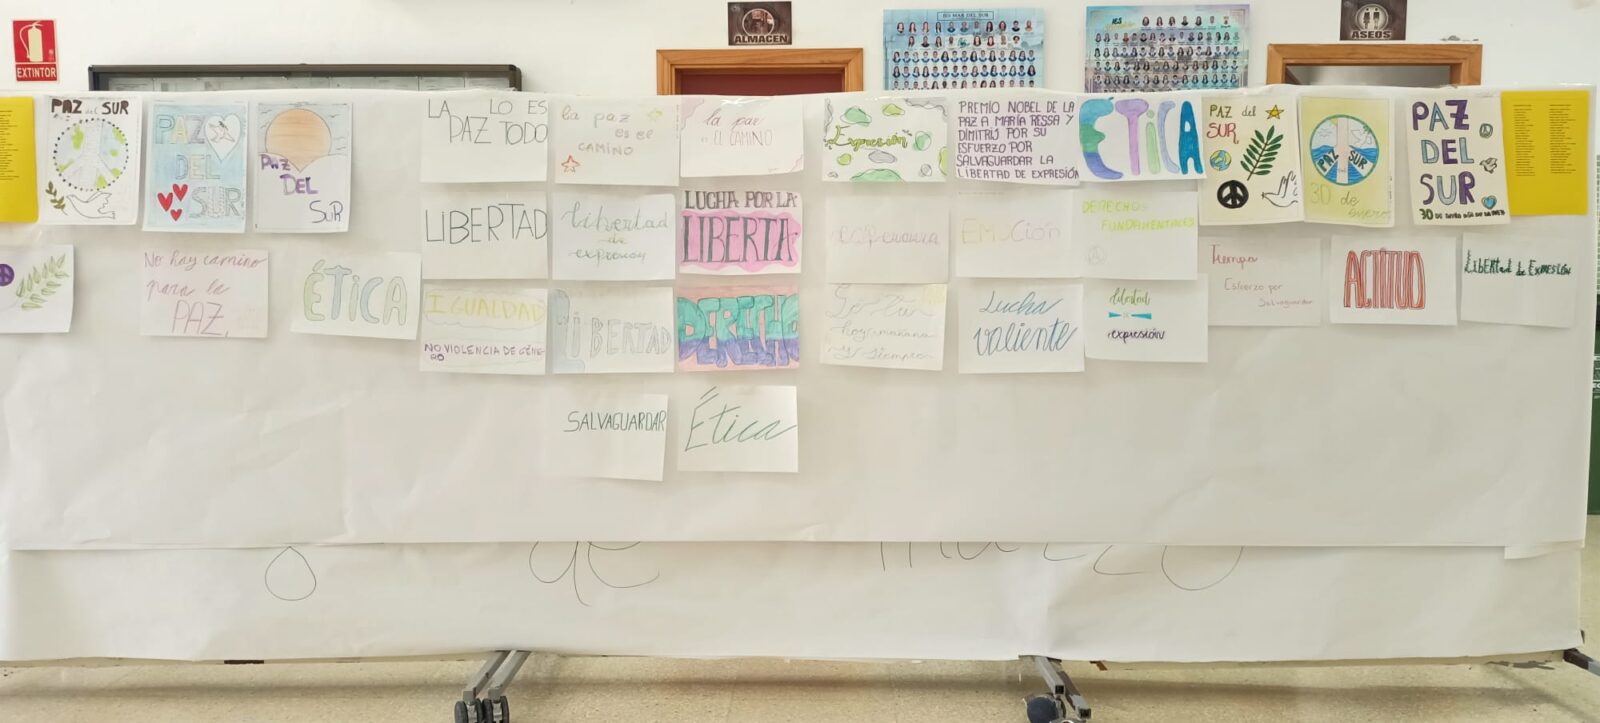 EXTINTOR
ALMACEN
IES MAR DEL SUR
IES
ASEOS
PAZ del SUR
PAZ
DEL
SUR
PAZ
DEL
SUR
LA PAZ LO ES TODO
la paz
es el
CAMINO
la paz
EL CAMINO
Expresión
PREMIO NOBEL DE LA
PAZ A MARÍA RESSA Y
DIMITRIJ POR SU
ESFUERZO POR
SALVAGUARDAR LA
LIBERTAD DE EXPRESIÓN
ÉTICA
PAZ del
SUR
PAZ SUR
30 de
enero
PAZ
DEL
SUR
LIBERTAD
libertad
de
expresión
LUCHA POR LA
LIBERTA
EMOCIÓN
DERECHOS
FUNDAMENTALES
No hay camino
para la
PAZ.
ÉTICA
IGUALDAD
NO VIOLENCIA DE GÉNE-
RO
LIBERTAD
DERECHO
hoy, mañana
y siempre
Lucha
valiente
libertad
de
expresión
Tiempo
Esfuerzo por
Salvaguardar
ACTITUD
LibERtad de EXPRESIÓN
SALVAGUARDAR
Ética
8 de marzo